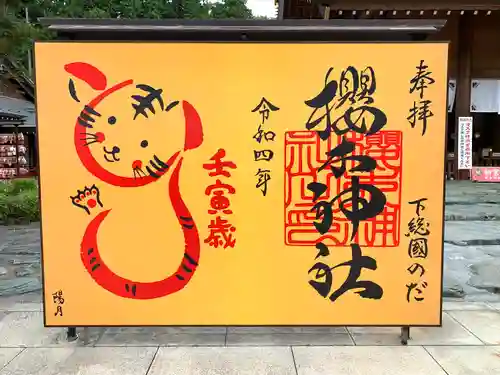 奉拝
下総国のだ
櫻木神社
令和四年
壬寅歳
陽月